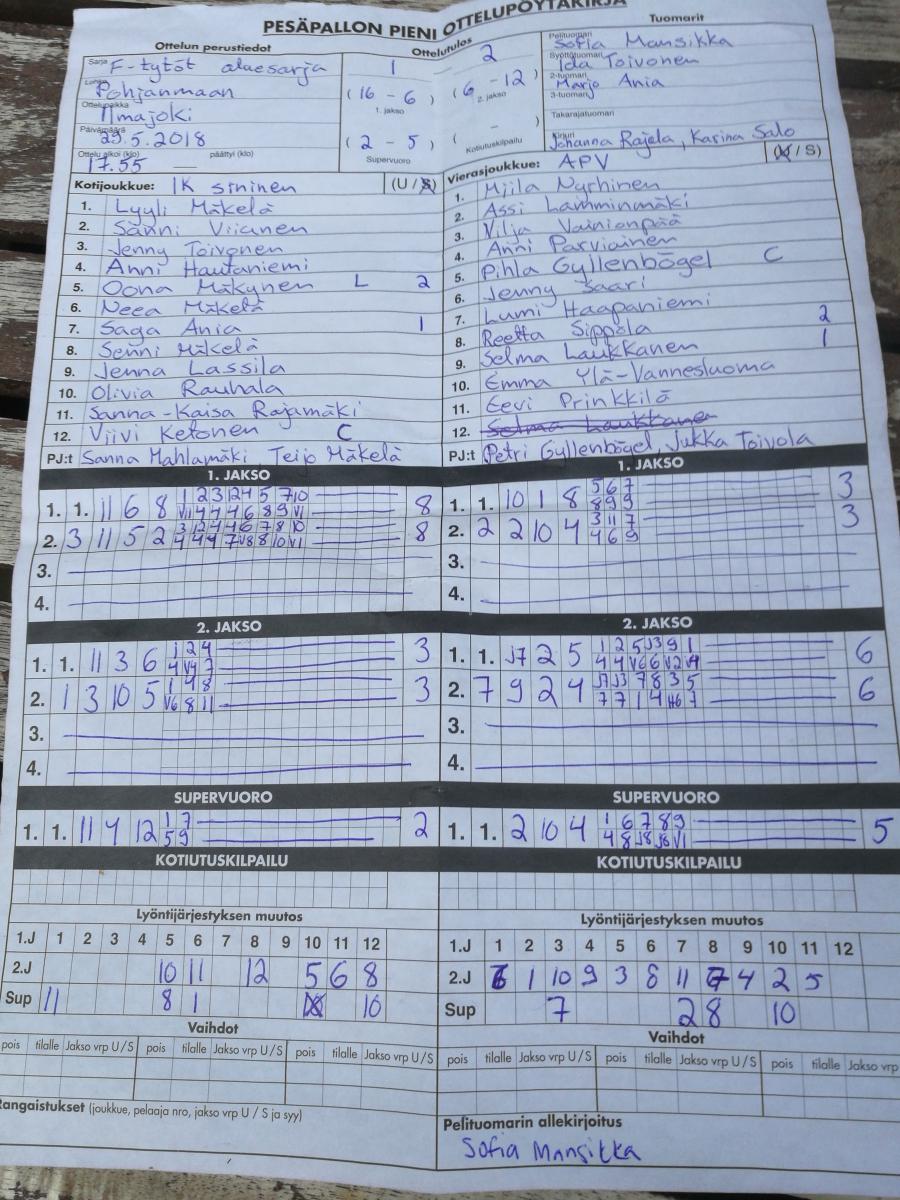 PESÄPALLON PIENI OTTELUPÖYTÄKIRJA
Ottelun perustiedot
Sarja F-tytöt aluesarja
Lohko Pohjanmaan
Ottelupaikka Ilmajoki
Päivämäärä 29.5.2018
Ottelu alkoi (klo) 17.55 — päättyi (klo)
Ottelutulos
1 – 2
(16 - 6) (6 - 12)
1. jakso 2. jakso
(2 - 5) ( - )
Supervuoro Kotiutuskilpailu
Tuomarit
Pelituomari Sofia Mansikka
Syöttötuomari Ida Toivonen
2-tuomari Marjo Ania
3-tuomari
Takarajatuomari
Kirjuri Johanna Rajala, Karina Salo
Kotijoukkue: IK sininen (U / S)
1. Lyyli Mäkelä
2. Sanni Viianen
3. Jenny Toivonen
4. Anni Hautaniemi
5. Oona Mäkynen L 2
6. Neea Mäkelä
7. Saga Ania 1
8. Senni Mäkelä
9. Jenna Lassila
10. Olivia Rauhala
11. Sanna-Kaisa Rajamäki
12. Viivi Ketonen C
PJ:t Sanna Mahlamäki Teijo Mäkelä
Vierasjoukkue: APV (U / S)
1. Miila Nyrhinen
2. Assi Lamminmäki
3. Vilja Vainionpää
4. Anni Parviainen
5. Pihla Gyllenbögel C
6. Jenny Saari
7. Lumi Haapaniemi
8. Reetta Sippola 2
9. Selma Laukkanen 1
10. Emma Ylä-Vannesluoma
11. Eevi Prinkkilä
12. Selma Laukkanen
PJ:t Petri Gyllenbögel, Jukka Toivola
1. JAKSO
1. 1. 11 6 8 1 2 3 12 4 5 7 10 8
V11 4 4 4 6 8 9 V1
2. 3 11 5 2 3 12 4 4 6 7 8 10 8
4 4 4 7 V8 8 10 V1
3.
4.
1. JAKSO
1. 1. 10 1 8 5 6 7 3
8 9 9
2. 2 2 10 4 3 11 7 3
4 6 9
3.
4.
2. JAKSO
1. 1. 11 3 6 1 2 4 3
4 V4 7
2. 1 3 10 5 1 4 8 3
V6 8 11
3.
4.
2. JAKSO
1. 1. J7 2 5 1 2 5 J3 9 1 6
4 4 V6 6 V2 V4
2. 7 9 2 4 J7 J3 7 8 3 5 6
7 7 1 4 H6 7
3.
4.
SUPERVUORO
1. 1. 11 4 12 1 7 2
5 9
SUPERVUORO
1. 1. 2 10 4 1 6 7 8 9 5
4 8 J8 J6 V1
KOTIUTUSKILPAILU
KOTIUTUSKILPAILU
Lyöntijärjestyksen muutos
1.J 1 2 3 4 5 6 7 8 9 10 11 12
2.J 10 11 12 5 6 8
Sup 11 8 1 10
Lyöntijärjestyksen muutos
1.J 1 2 3 4 5 6 7 8 9 10 11 12
2.J 6 1 10 9 3 8 11 7 4 2 5
Sup 7 2 8 10
Vaihdot
pois tilalle Jakso vrp U / S pois tilalle Jakso vrp U / S pois tilalle Jakso vrp U / S
Vaihdot
pois tilalle Jakso vrp U / S pois tilalle Jakso vrp U / S pois tilalle Jakso vrp
Rangaistukset (joukkue, pelaaja nro, jakso vrp U / S ja syy)
Pelituomarin allekirjoitus
Sofia Mansikka